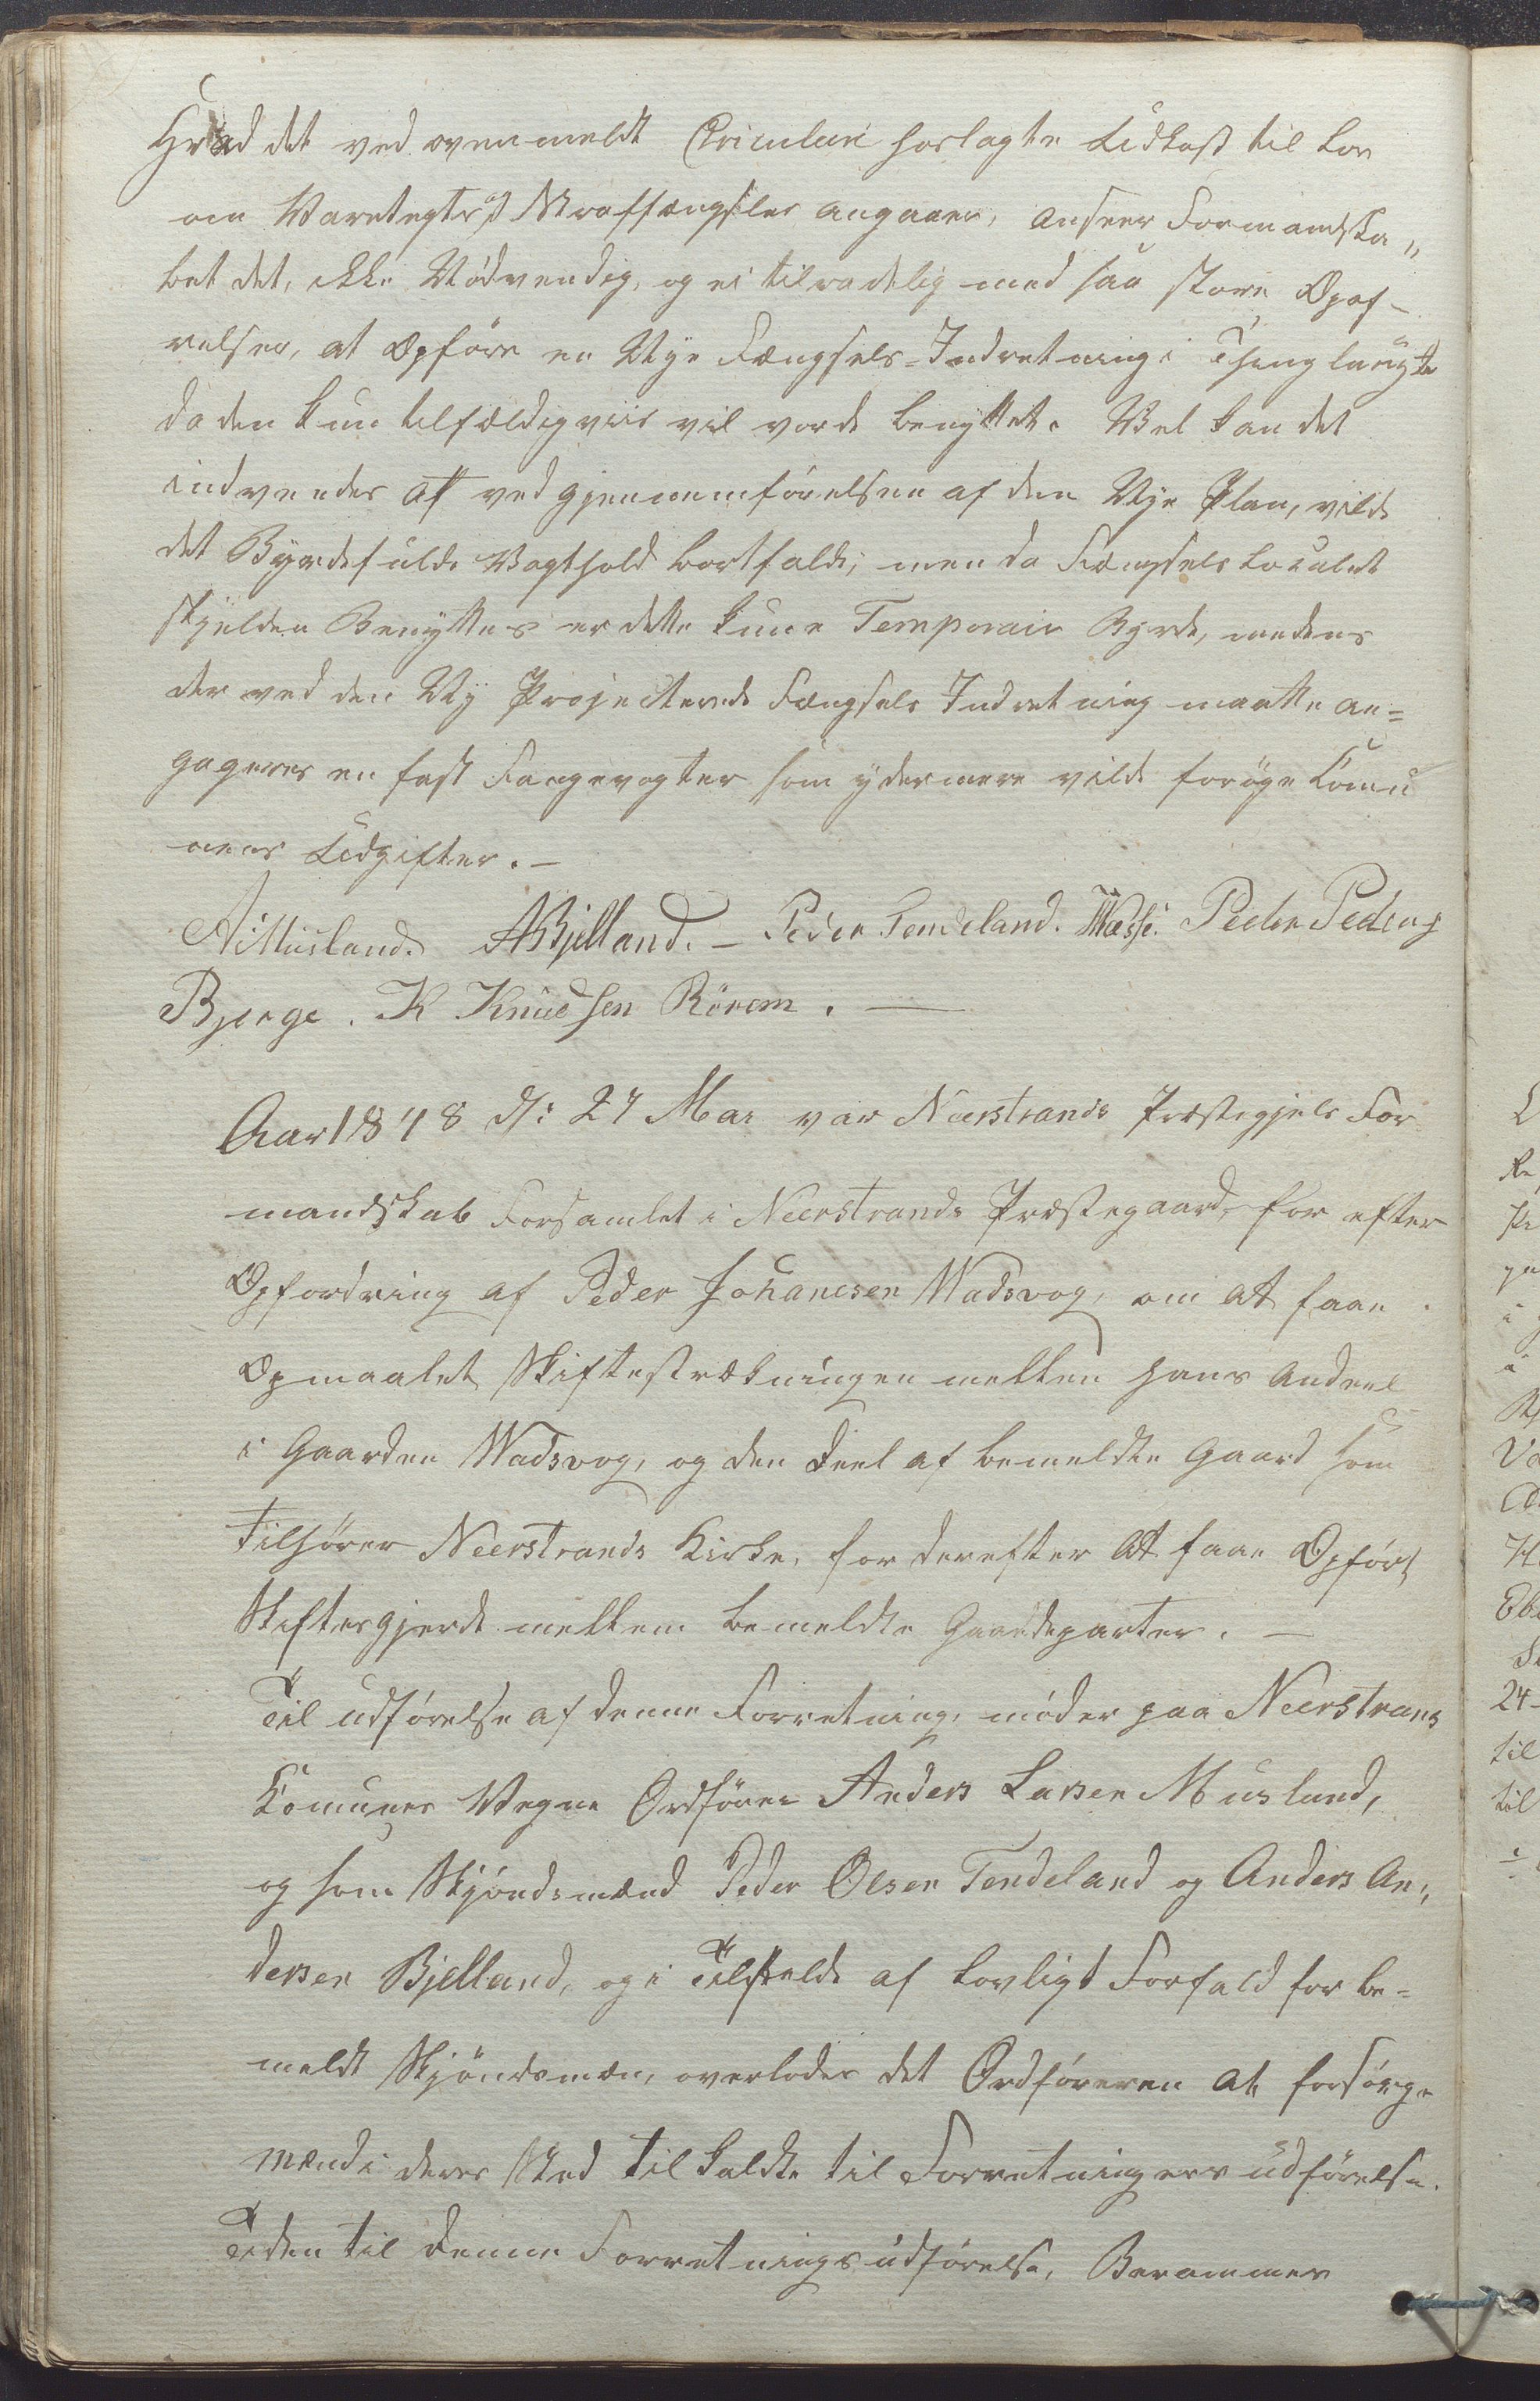 Hvad det ved ovenmeldt Circulair forlagte Udkast til Lov
om Varetegts og Straffængsler angaaer, anseer Formandska„
bet det, ikke Nödvendig, og ei tilraadelig med saa store Opof-
relser, at Opföre en Nye Fængsels-Indretning i Thinglauget
da den kun tilfældigviis vil vorde benyttet. Vel kan det
indvendes at ved gjennemförelsen af den Nye Plan, vilde
det Byrdefulde Vagthold bortfalde; men da Fængsels Localet
skjelden Benyttes er dette kun en Temporair Byrde, medens
der ved den Ny Projecterede Fængsels Indretning maatte an=
gageres en fast Fangevogter som ydermere vilde foröge Comu
nens Udgifter. -
Musland. ABjelland. - Peder Tendeland. Peder Peders
Bjerge. K Knudsen Rörem. -
Aar 1848 d: 27 Mai var Neerstrands Præstegjels For
mandskab Forsamlet i Neerstrands Præstegaard, for efter
Opfordring af Peder Johanesen Wadsvog, om at faae
Opmaalet Skiftestrækningen mellem hans Andeel
i Gaarden Wadsvog, og den Deel af bemeldte Gaard som
tilhörer Neerstrands Kirke, for derefter at faae Opfört
Skiftesgjerde mellem bemeldte Gaardeparter. -
Til udförelse af denne Forretning, möder paa Neerstrans
Comunes Vegne Ordförer Anders Larsen Musland,
og som Skjöndsmænd Peder Olsen Tendeland og Anders An„
dersen Bjelland, og i Tilfælde af Lovligt Forfald for be=
meldte Skjöndsmæn, overlodes det Ordföreren at forsörge
mænd i deres Sted tilkaldte til Forretningens udförelse.
Tiden til denne Forretnings udförelse, Berammes
24-
til
til